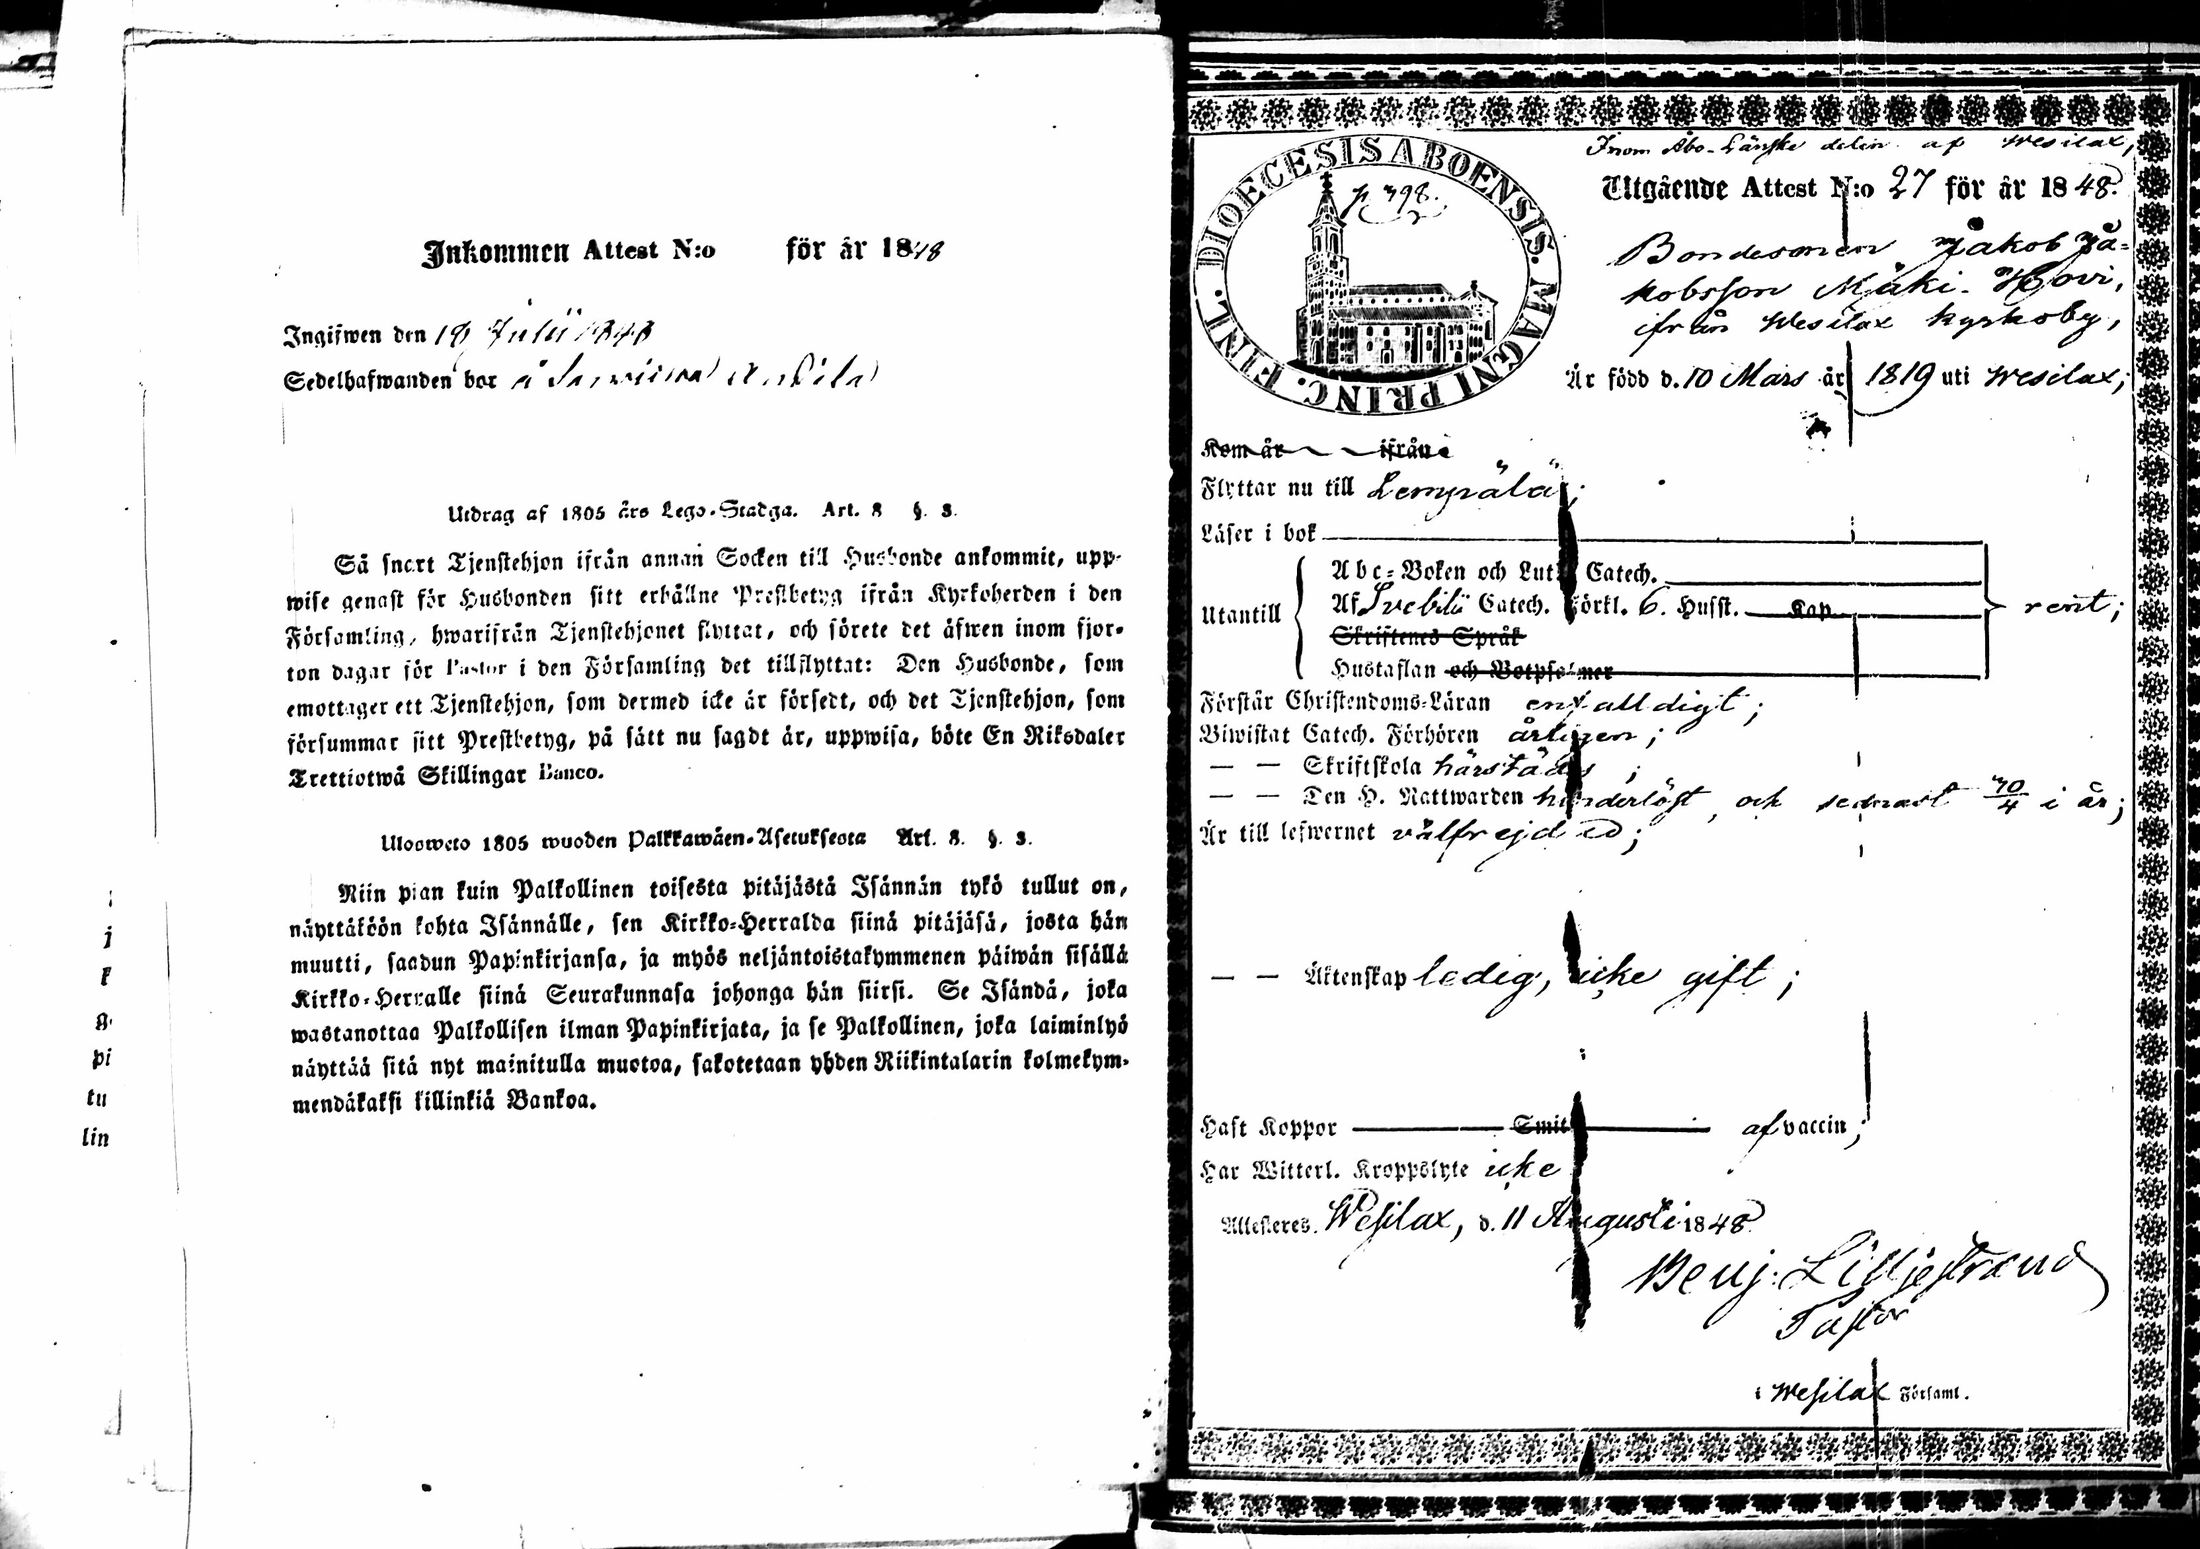 Inkommen Attest N:o för år 1848
Ingifwen den Julii 1848
Sedelhafwanden bor å
Utdrag af 1805 års Lego-Stadga. Art. 8 §. 3.
Så snart Tjenstehjon ifrån annan Socken till Husbonde ankommit, upp-
wise genast för Husbonden sitt erhållne Prestbetyg ifrån Kyrkoherden i den
Församling, hwarifrån Tjenstehjonet flyttat, och förete det äfwen inom fjor-
ton dagar för Pastor i den Församling det tillflyttat: Den Husbonde, som
emottager ett Tjenstehjon, som dermed icke är försedt, och det Tjenstehjon, som
försummar sitt Prestbetyg, på sätt nu sagdt är, uppwisa, böte En Riksdaler
Trettiotwå Skillingar Banco.
Ulosweto 1805 wuoden Palkkawäen-Asetuksesta Art. 8. §. 3.
Niin pian kuin Palkollinen toisesta pitäjästä Isännän tykö tullut on,
näyttäköön kohta Isännälle, sen Kirkko-Herralda siinä pitäjäsä, josta hän
muutti, saadun Papinkirjansa, ja myös neljäntoistakymmenen päiwän sisällä
Kirkko-Herralle siinä Seurakunnasa johonga hän siirsi. Se Isändä, joka
wastanottaa Palkollisen ilman Papinkirjata, ja se Palkollinen, joka laiminlyö
näyttää sitä nyt mainitulla muotoa, sakotetaan yhden Riikintalarin kolmekym-
mendäkaksi killinkiä Bankoa.
j
k
g
pi
tu
lin
DIOECESIS ABOENSIS. MAGNI PRINC. FINL.
p 398.
Inom Åbo-Länske delen af Wesilax,
Utgående Attest N:o 27 för år 1848.
Bondesonen Jakob Ja-
kobsson Mäki-Hovi,
ifrån Wesilax kyrkoby,
Är född d. 10 Mars år 1819 uti Wesilax;
Kom år ifrån
Flyttar nu till Lempälä;
Läser i bok
Utantill
Abc-Boken och Luth. Catech.
Af Svebilii Catech. Förkl. 6. Husst. Kap.
Skriftenes Språk
Hustaflan och Botpsalmer
rent;
Förstår Christendoms-Läran enfalldigt;
Biwistat Catech. Förhören årligen;
— — Skriftskola härstädes;
— — Den H. Nattwarden hinderlöst, och sednast 30/4 i år;
Är till lefwernet välfrejdad;
— — Äktenskap ledig, icke gift;
Haft Koppor Smit af vaccin;
Har Witterl. Kroppslyte icke
Attesteres. Wesilax, d. 11 Augusti 1848
Benj: Lilljestrand
Pastor
i Wesilax Församl.